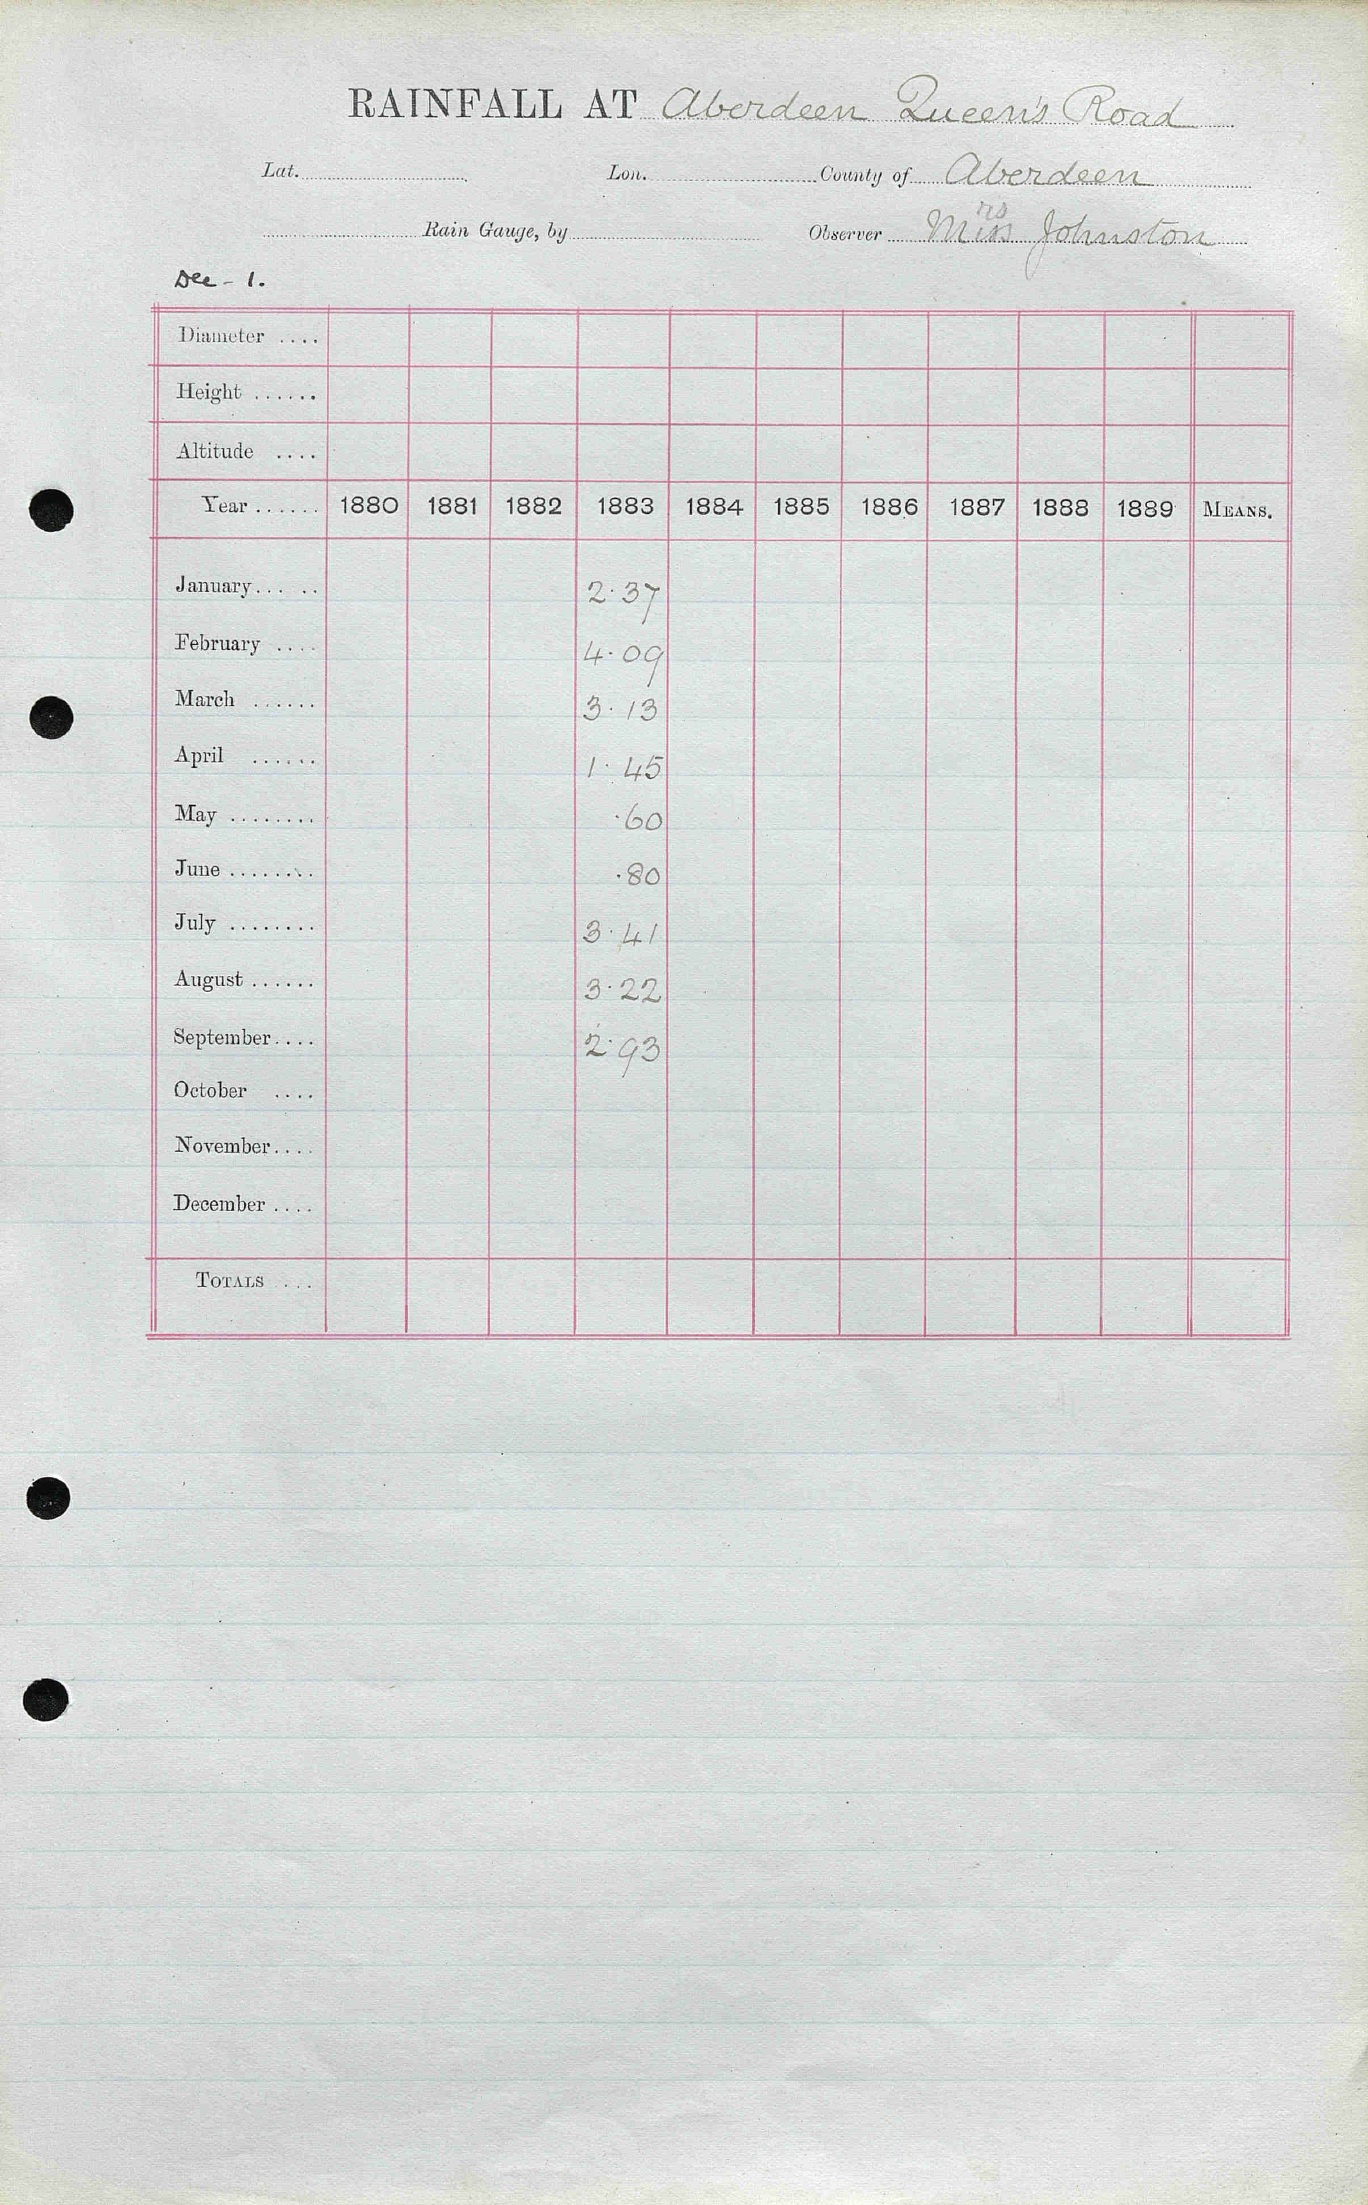 RAINFALL AT Aberdeen Queen's Road
Lat. Lon. County of Aberdeen
rs
Rain Gauge, by Observer Miss Johnston
Dec - 1.
Diameter ....
Height ......
Altitude ....
Year ...... 1880 1881 1882 1883 1884 1885 1886 1887 1888 1889 MEANS.
January... .. 2.37
February .... 4.09
March ...... 3.13
April ...... 1.45
May ........ .60
June ........ .80
July ........ 3.41
August ...... 3.22
September.... 2.93
October ....
November....
December ....
TOTALS ...